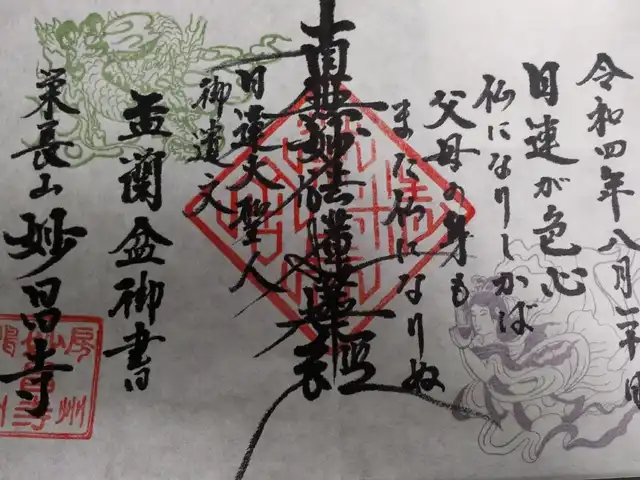 令和四年八月二十日
目連が色心
仏になりしかば
父母の身も
また仏になりぬ
南無妙法蓮華経
日蓮大聖人
御遺文
盂蘭盆御書
栄長山 妙昌寺